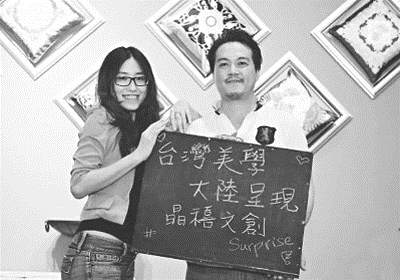 台灣美學
大陸呈現
晶禧文創
Surprise